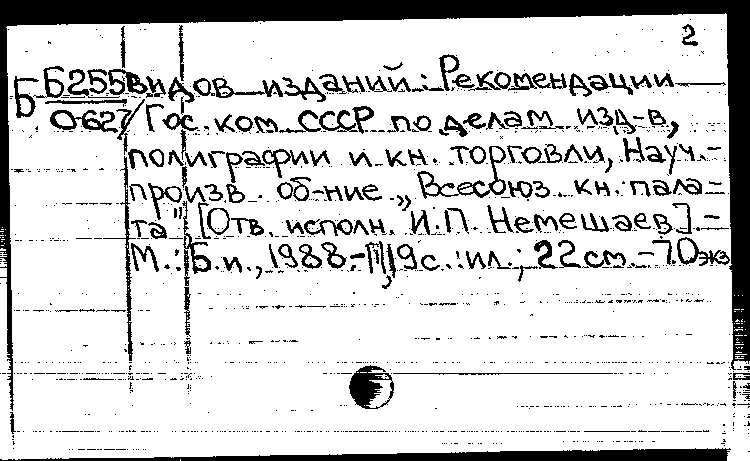 2
Б Б255 видов изданий: Рекомендации
0-627 / Гос. ком. СССР по делам изд-в,
полиграфии и кн. торговли, Науч.-
произв. об-ние „Всесоюз. кн. пала-
та". [Отв. исполн. И.П. Немешаев]. -
М.: Б.и., 1988. - [1], 19 с.: ил.; 22 см. - 70 экз